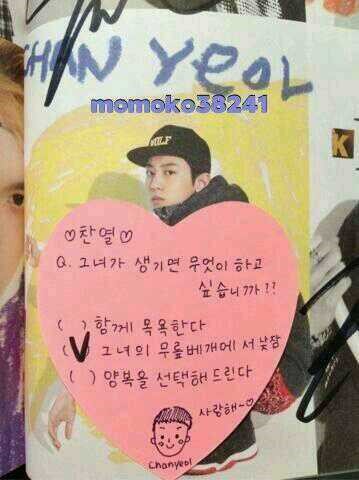 CHAN YEOL
momoko38241
WOLF
K
♡찬열♡
Q. 그녀가 생기면 무엇이 하고
싶습니까??
( ) 함께 목욕한다
(✓) 그녀의 무릎베개에서 낮잠
( ) 양복을 선택해 드린다
사랑해~♡
Chanyeol